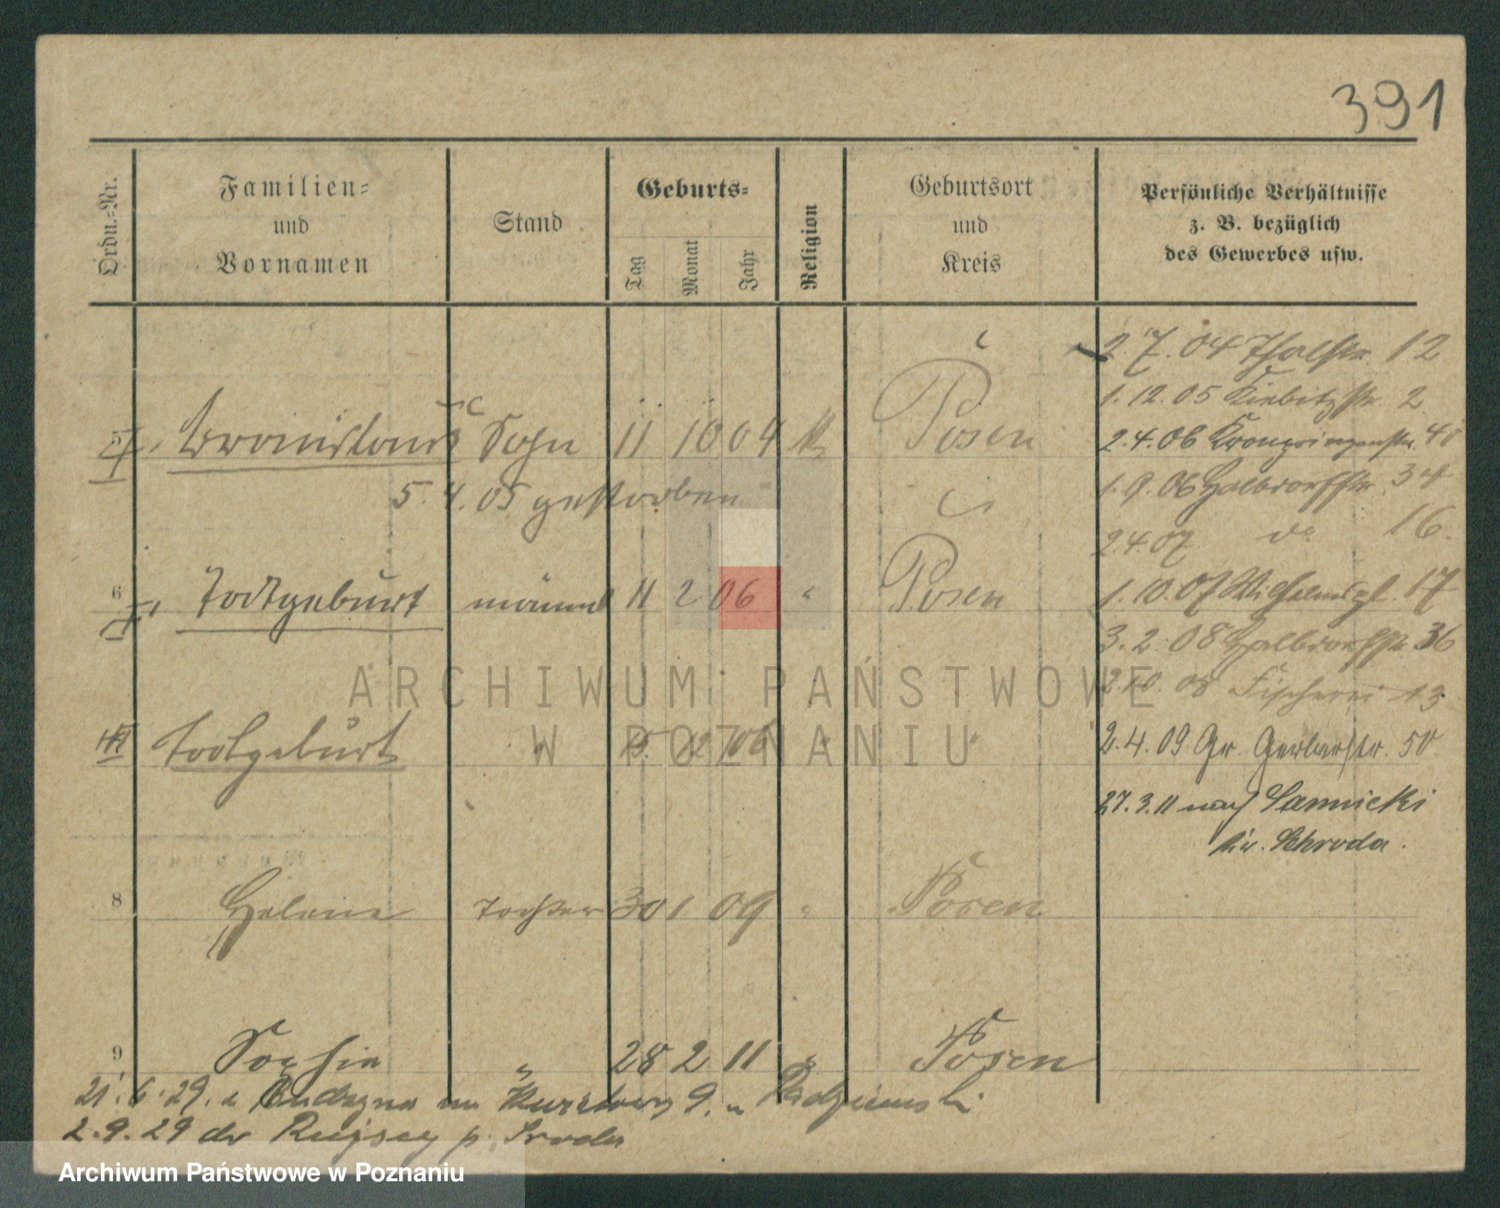 391
Ordn.-Nr.
Familien-
und
Vornamen
Stand
Geburts-
Tag
Monat
Jahr
Religion
Geburtsort
und
Kreis
Persönliche Verhältnisse
z. B. bezüglich
des Gewerbes usw.
2.7.04 Thalstr. 12
1.12.05 Kiebitzstr. 2
Bronislaus Sohn 11 10 04 k Posen
2.4.06 Kronprinzenstr.
5.4.05 gestorben
1.9.06 Halbdorfstr. 34
2.4.07 do 16.
6 Todtgeburt männl 11 2 06 " Posen
1.10.07 Wilhelmspl. 17
3.2.08 Halbdorfstr. 36
08 Fischerei 13
Todtgeburt " 15 12 06 " "
2.4.09 Gr. Gerberstr. 50
27.3.11 nach Sannicki
Kr. Schroda.
8 Helene Tochter 30 1 09 " Posen
9 Sophie " 28 2 11 " Posen
21.6.29. z
2.9.29 do p. Sroda
ARCHIWUM PAŃSTWOWE
W POZNANIU
Archiwum Państwowe w Poznaniu